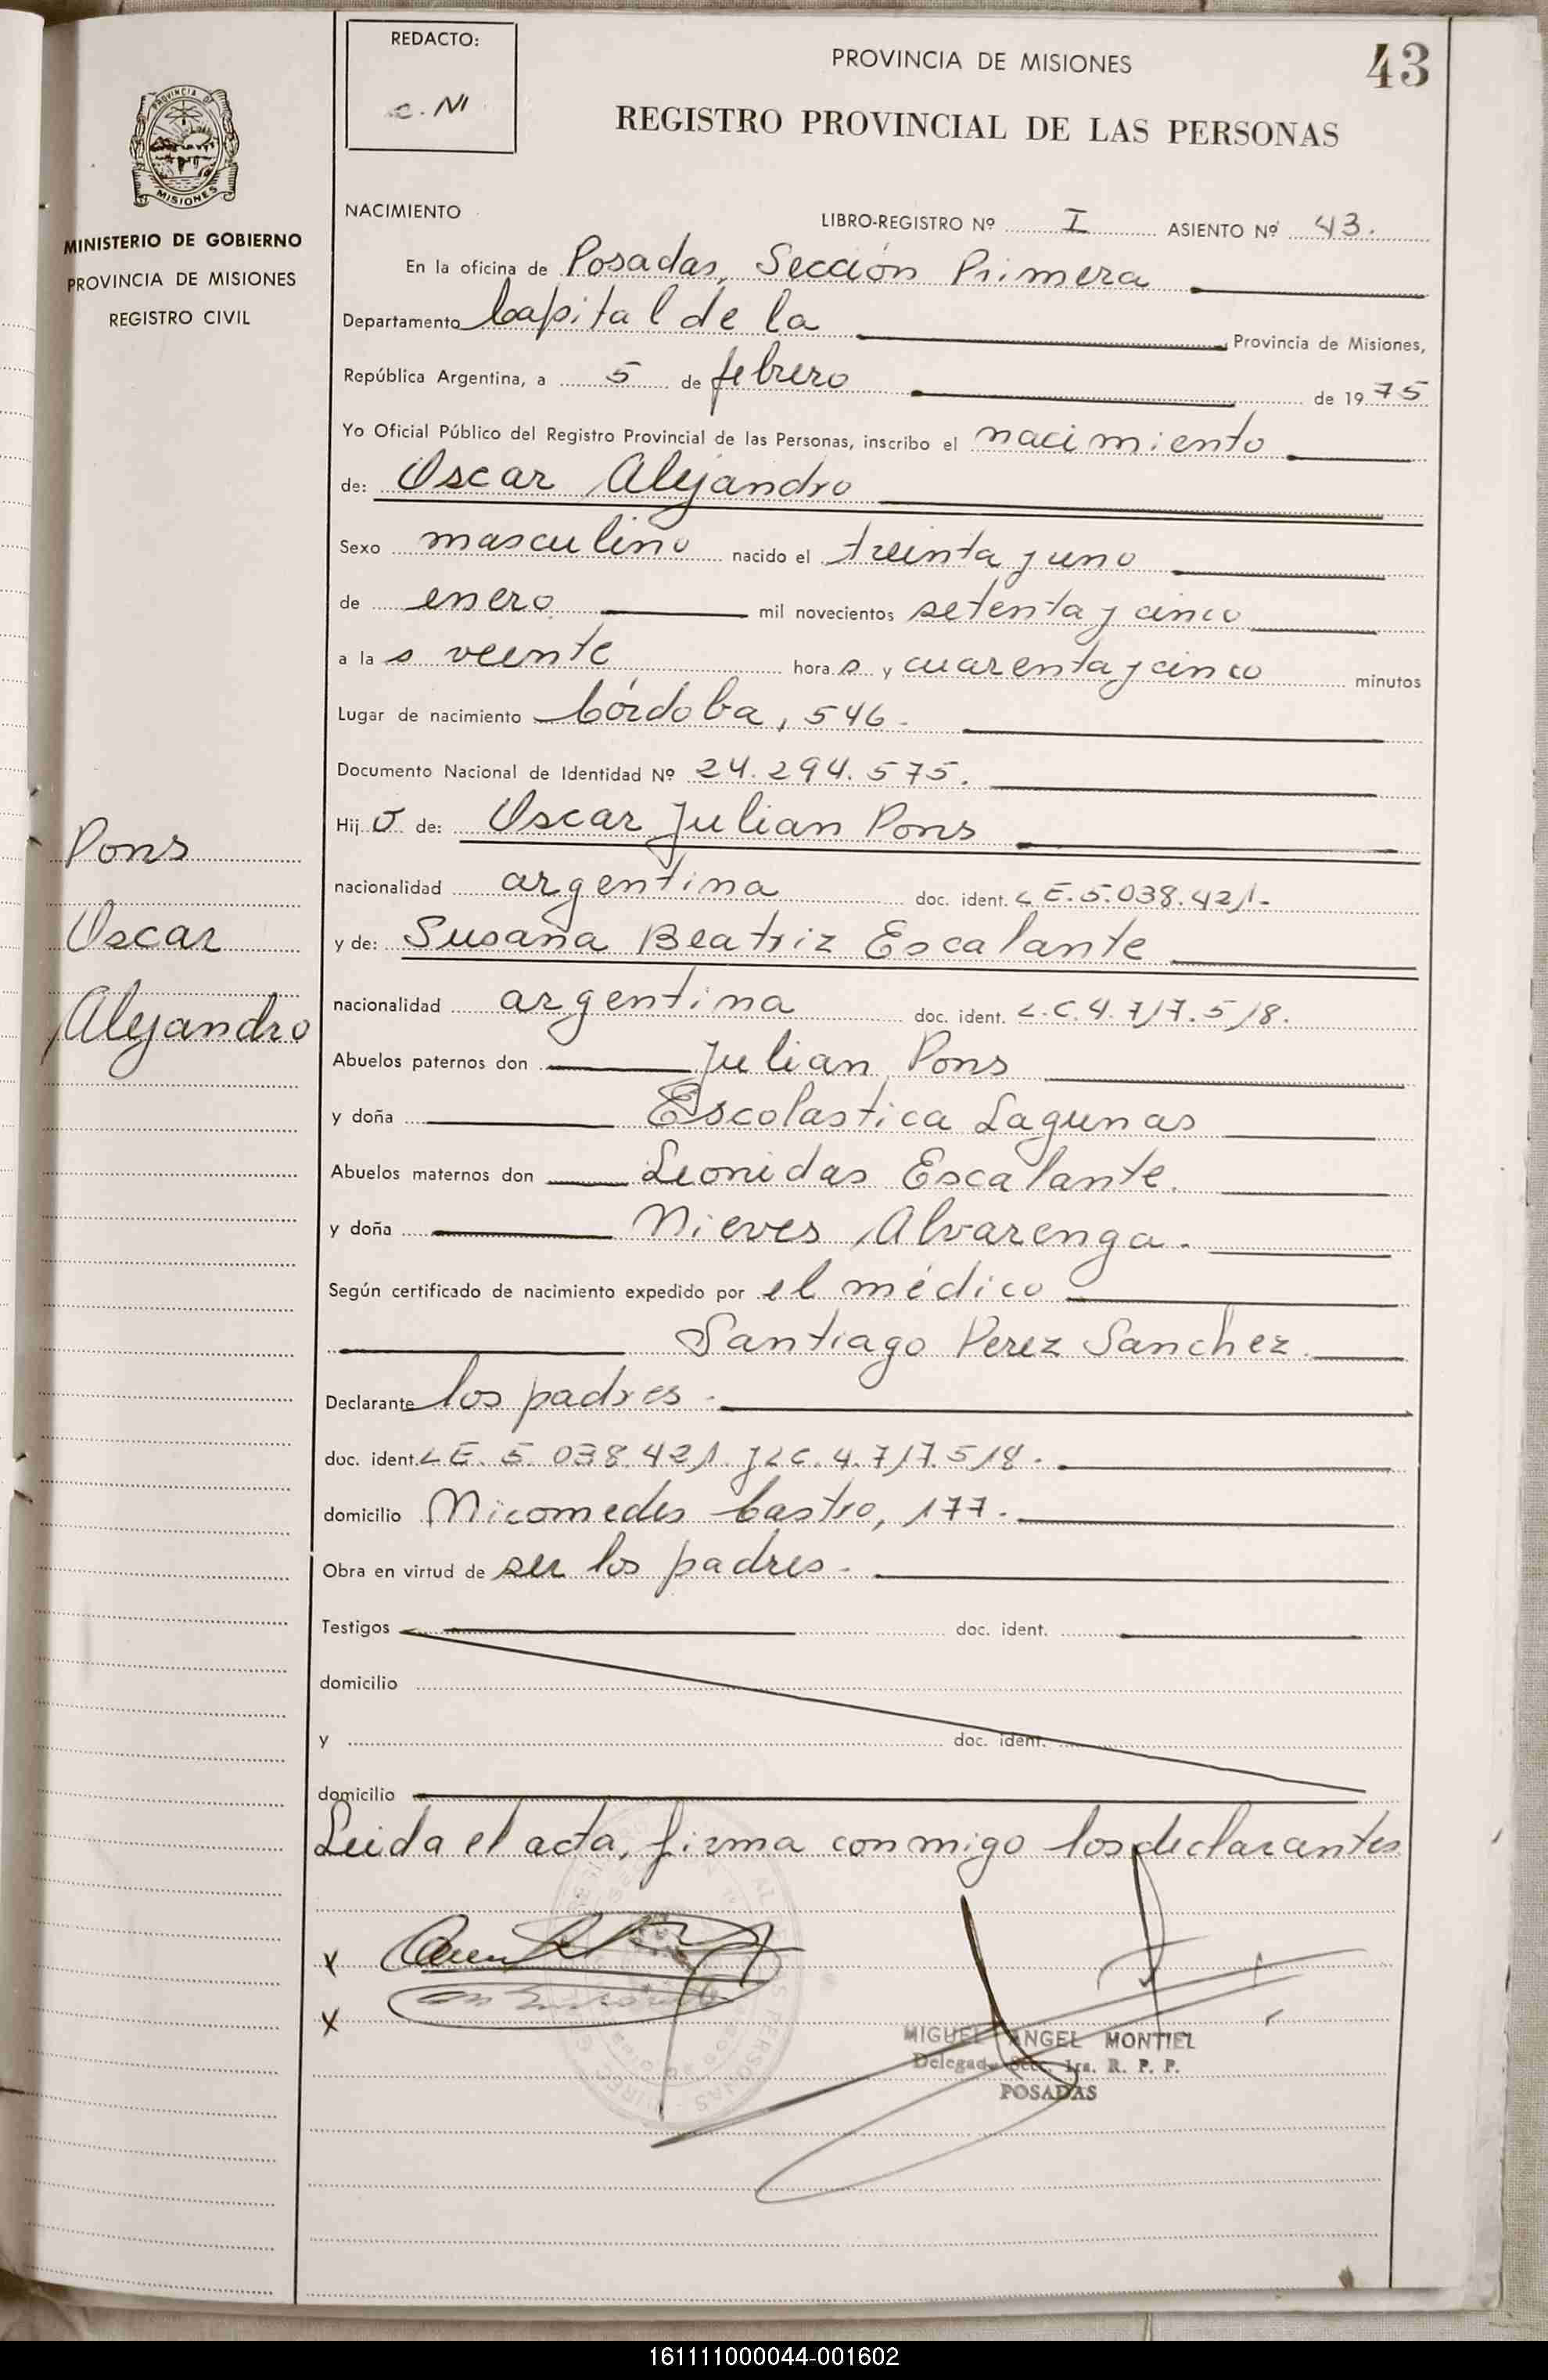 REDACTO:
PROVINCIA DE MISIONES
43
REGISTRO PROVINCIAL DE LAS PERSONAS
PROVINCIA DE
MISIONES
MINISTERIO DE GOBIERNO
PROVINCIA DE MISIONES
REGISTRO CIVIL
NACIMIENTO
LIBRO-REGISTRO Nº I ASIENTO Nº 43.
En la oficina de Posadas, Sección Primera
Departamento Capital de la Provincia de Misiones,
República Argentina, a 5 de febrero de 1975
Yo Oficial Público del Registro Provincial de las Personas, inscribo el nacimiento
de: Oscar Alejandro
Sexo masculino nacido el treinta y uno
de enero mil novecientos setenta y cinco
a las veinte horas y cuarenta y cinco minutos
Lugar de nacimiento Córdoba, 546.
Documento Nacional de Identidad Nº 24.294.575.
Hijo de: Oscar Julian Pons
nacionalidad argentina doc. ident. L E. 5.038.421.
y de: Susana Beatriz Escalante
nacionalidad argentina doc. ident. L.C. 4.717.518.
Abuelos paternos don Julian Pons
y doña Escolastica Lagunas
Abuelos maternos don Leonidas Escalante.
y doña Nieves Alvarenga.
Según certificado de nacimiento expedido por el médico
Santiago Perez Sanchez.
Declarante los padres.
doc. ident. L E. 5.038.421. y L C. 4.717.518.
domicilio Nicomedes Castro, 177.
Obra en virtud de ser los padres.
Testigos doc. ident.
domicilio
y doc. ident.
domicilio
Leida el acta, firma conmigo los declarantes
x
x
MIGUEL ANGEL MONTIEL
Delegado Secc. 1ra. R. P. P.
POSADAS
Pons
Oscar
Alejandro
161111000044-001602